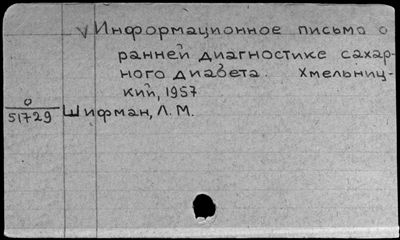 √Информационное письмо о
ранней диагностике сахар-
ного диабета. Хмельниц-
кий, 1957
О
51729
Шифман, Л. М.